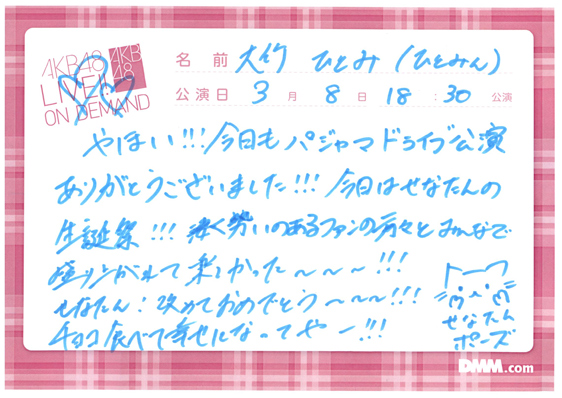 AKB48
LIVE!!
ON DEMAND
AKB
48
名前 大竹 ひとみ (ひとみん)
公演日 3月 8日 18:30 公演
やほい!!! 今日も パジャマドライブ公演
ありがとうございました!!! 今日はせなたんの
生誕祭!!! 勢いのあるファンの方々とみんなで
盛り上がれて 楽しかった〜〜〜!!!
せなたん! 改めておめでとう〜〜〜!!!
チョコ食べて幸せになってやー!!!
せなたん
ポーズ
DMM.com